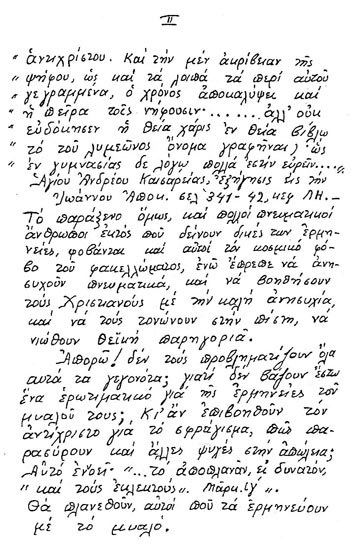 II
"ἀντιχρίστου. Καί τήν μέν ἀκρίβειαν τῆς
" ψήφου, ὡς καί τά λοιπά τά περί αὐτοῦ
" γεγραμμένα, ὁ χρόνος ἀποκαλύψει καί
" ἡ πεῖρα τοῖς νήφουσιν....... ἀλλ' οὐκ
" εὐδόκησεν ἡ θεία χάρις ἐν θεία βίβλω
" τό τοῦ λυμεῶνος ὄνομα γραφῆναι, ὡς
" ἐν γυμνασίας δε λόγω πολλά ἐστίν εὑρεῖν...."
Ἁγίου Ἀνδρέου Καισαρείας, ἐξήγησις εἰς τήν
Ἰωάννου Ἀποκ. σελ 341-42, κεφ ΛΗ.-
Τό παράξενο ὅμως, καί πολλοί πνευματικοί
ἄνθρωποι ἐκτός πού δείνουν δικές των ἑρμη-
νείες, φοβάνται καί αὐτοί τόν κοσμικό φό-
βο τοῦ φακελλώματος, ἐνῶ ἔπρεπε νά ἀνη-
συχοῦν πνευματικά, καί νά βοηθήσουν
τούς Χριστιανούς μέ τήν καλή ἀνησυχία,
καί νά τούς τονώνουν στήν πίστη, νά
νιώθουν θεϊκή παρηγοριά.
Ἀπορῶ! δέν τούς προβληματίζουν ὅλα
αυτά τα γεγονότα; γιατί δέν βάζουν ἔστω
ἕνα ἐρωτηματικό γιά τῆς ἑρμηνεῖες τοῦ
μυαλοῦ τους; Κι' ἄν ἐπιβοηθοῦν τόν
ἀντίχριστο γιά τό σφράγισμα, πῶς πα-
ρασύρουν καί ἄλλες ψυχές στήν ἀπώλεια;
Αὐτό ἐνοεῖ- "...τό ἀποπλανᾶν, εἰ δυνατόν,
" καί τούς ἐκλεκτούς". Μάρκ. ιγ'
Θά πλανεθοῦν, αὐτοί πού τά ἑρμηνεύουν
μέ τό μυαλό.